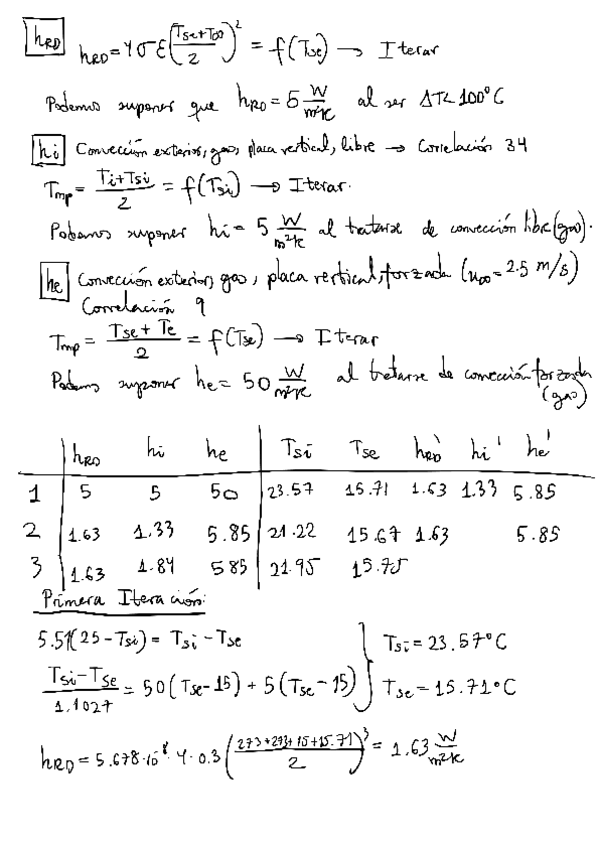 hRD hRD = 4σε((Tse+T∞)/2)² = f(Tse) → Iterar
Podemos suponer que hRD = 5 W/m²K al ser ΔT<100°C
hi Convección exterior, gas, placa vertical, libre → Correlación 34
Tmp = (Ti+Tsi)/2 = f(Tsi) → Iterar.
Podemos suponer hi = 5 W/m²K al tratarse de convección libre (gas).
he Convección exterior, gas, placa vertical, forzada (u∞ = 2.5 m/s)
Correlación 9
Tmp = (Tse + Te)/2 = f(Tse) → Iterar
Podemos suponer he = 50 W/m²K al tratarse de convección forzada
(gas)
hRD hi he Tsi Tse hRD' hi' he'
1 5 5 50 23.57 15.71 1.63 1.33 5.85
2 1.63 1.33 5.85 21.22 15.67 1.63 5.85
3 1.63 1.84 585 21.95 15.75
Primera Iteración:
5.51(25-Tsi) = Tsi-Tse
Tsi = 23.57°C
(Tsi-Tse)/1.1027 = 50(Tse-15) + 5(Tse-15)
Tse = 15.71°C
hRD = 5.678·10⁻⁸·4·0.3((273+273+15+15.71)/2)³ = 1.63 W/m²K